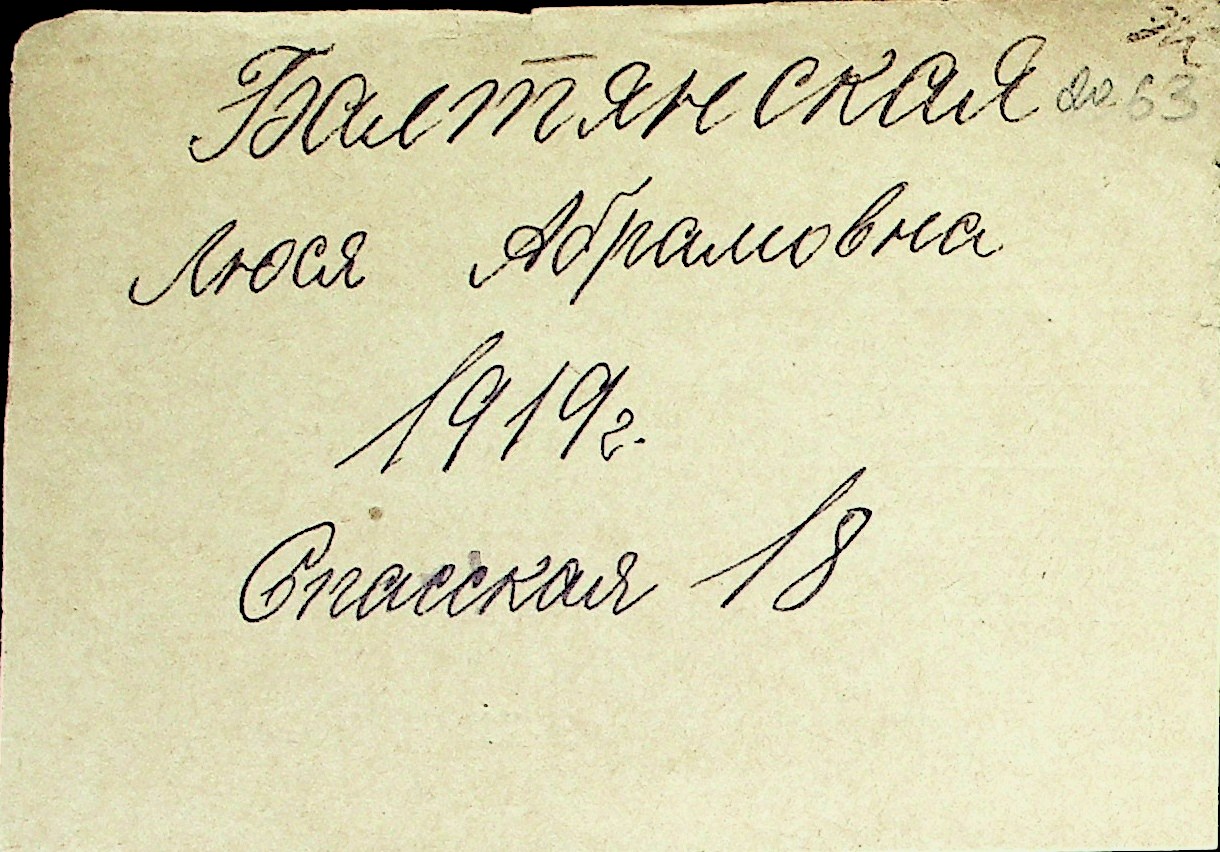 Балтянская
Люся Абрамовна
1919 г.
Спасская 18